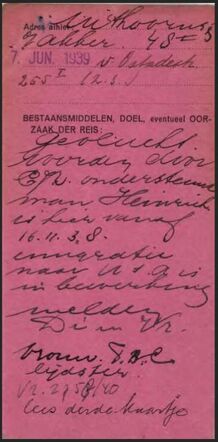 Adres alhier:
Uithoorns
Jakker. 48 II
7 JUN. 1939 v Ostadestr.
255 I (12.3.)
BESTAANSMIDDELEN, DOEL, eventueel OOR-
ZAAK DER REIS:
gevlucht
worden door
ondersteund
man Heinrich
is hier vanaf
16.11.38.
emigratie
naar U S A is
in bewerking
melden
Di en Vr.
vrouw. T.B.C
lijdster.
Vr. 2758/40
lees derde kaartje